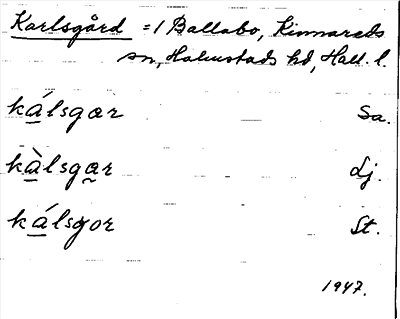 Karlsgård =1 Ballabo, Kinnareds
sn, Halmstads hd, Hall. l.
kálsgar Sa.
kàlsgar Lj.
kálsgor St.
1947.